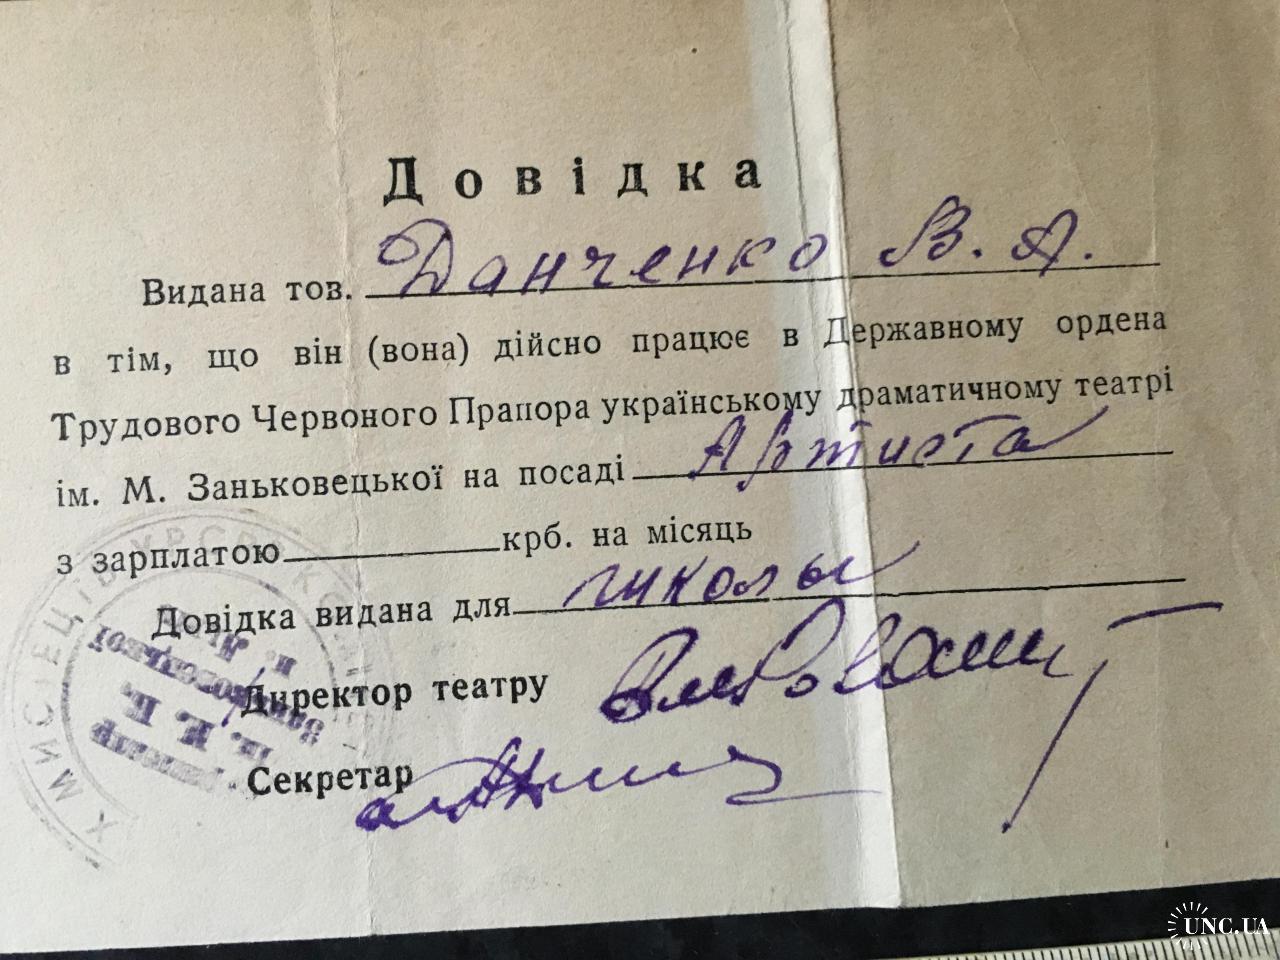 Довідка
Видана тов. Данченко В. А.
в тім, що він (вона) дійсно працює в Державному ордена
Трудового Червоного Прапора українському драматичному театрі
ім. М. Заньковецької на посаді Артиста
з зарплатою крб. на місяць
Довідка видана для школы
Директор театру
Секретар
UNC.UA